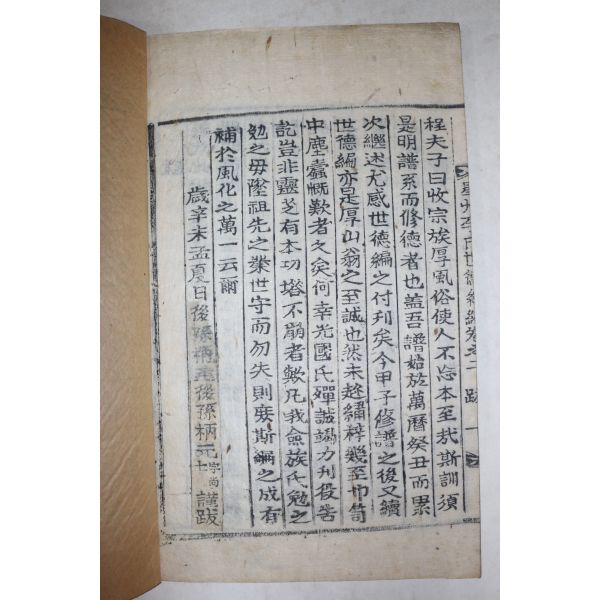 星州李氏世德續編卷之二 跋 一
程夫子曰收宗族厚風俗使人不忘本至哉斯訓須
是明譜系而修德者也盖吾譜始於萬曆癸丑而累
次繼述尤感世德編之付刋矣今甲子修譜之後又續
世德編亦是厚山翁之至誠也然未趂繡梓幾至巾笥
中塵蠹慨歎者久矣何幸光國氏殫誠竭力刋役告
訖豈非靈芝有本功塔不崩者歟凡我僉族氏勉之
勉之毋墜祖先之業世守而勿失則庶斯編之成有
補於風化之萬一云爾
歲辛未孟夏日後孫 後孫炳元 字尚 謹跋